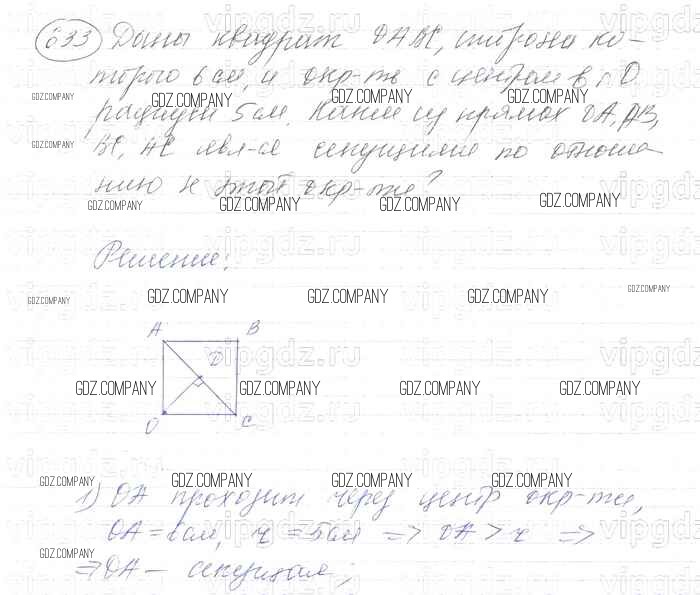 633 Даны квадрат OABC, сторона ко-
торого 6 см, и окр-ть с центром в т. O
радиуса 5 см. Какие из прямых OA, AB,
BC, AC явл-ся секущими по отноше-
нию к этой окр-ти?
Решение:
A B
D
O C
1) OA проходит через центр окр-ти,
OA = 6 см, r = 5 см => OA > r =>
=> OA – секущая;
GDZ.COMPANY
vipgdz.ru